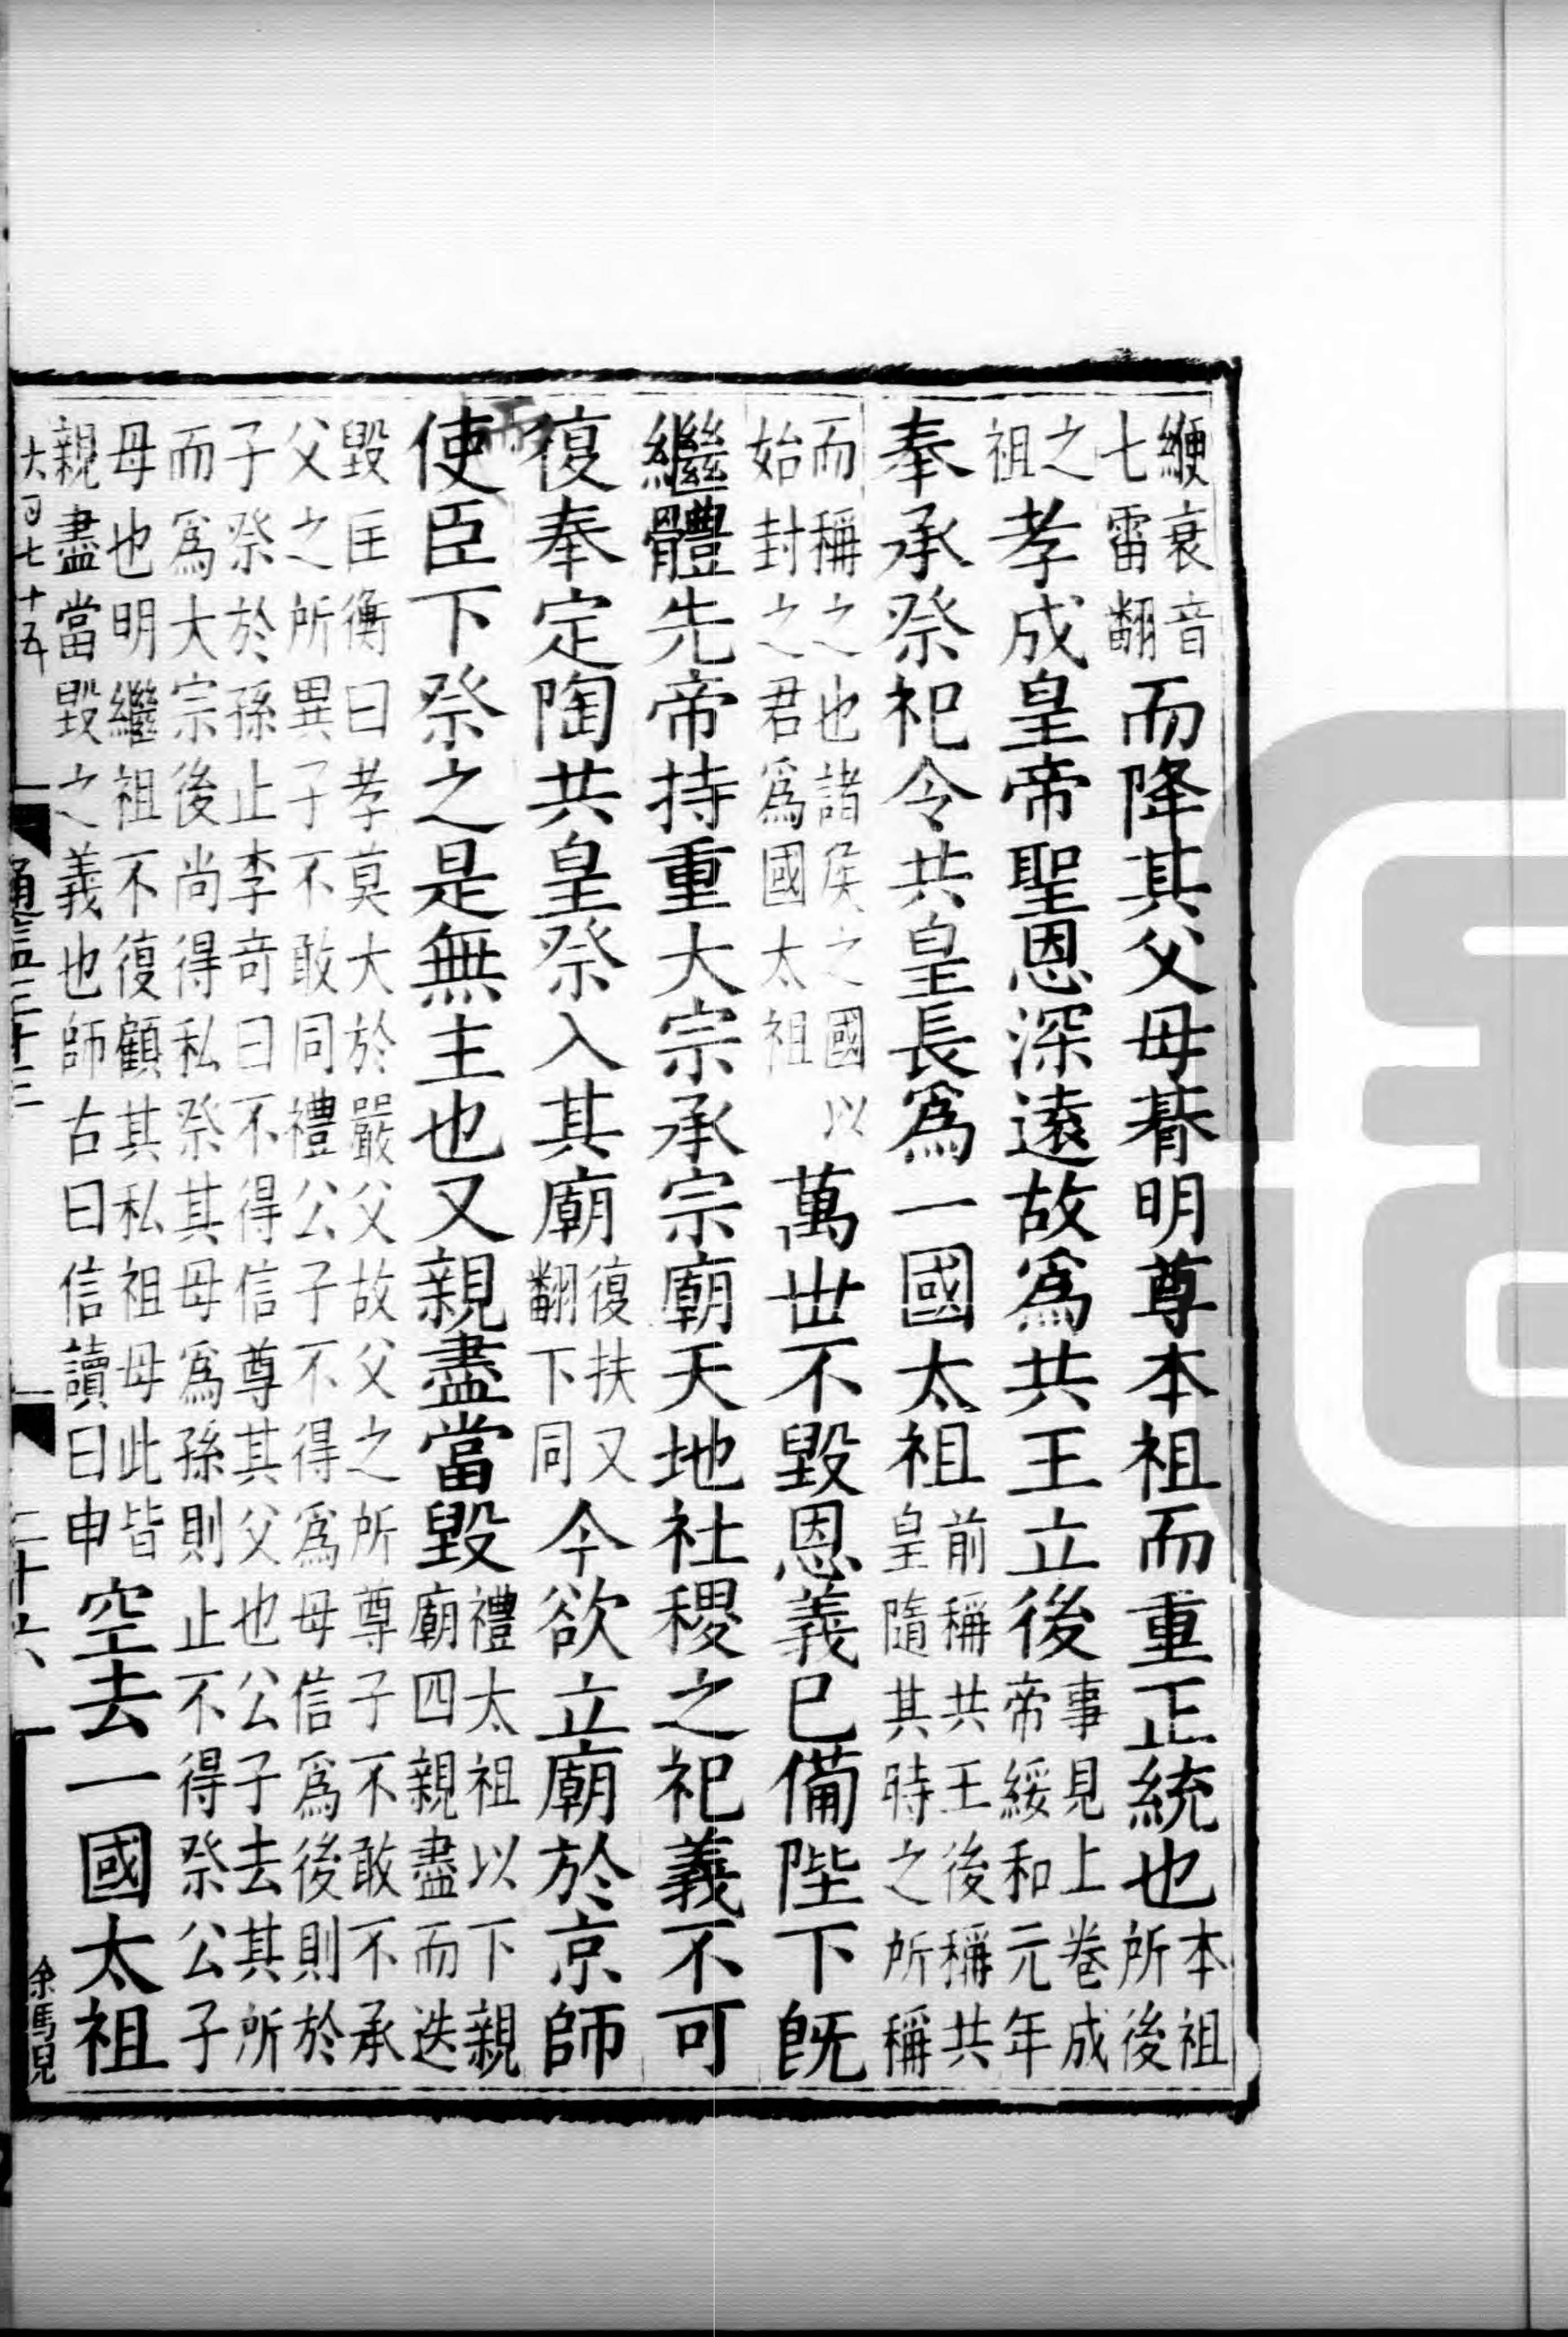 縗衰音七雷翻而降其父母朞明尊本祖而重正統也本祖所後
之祖孝成皇帝聖恩深遠故爲共王立後事見上卷成帝綏和元年
奉承祭祀令共皇長爲一國太祖前稱共王後稱共皇隨其時之所稱
而稱之也諸侯之國以始封之君爲國太祖萬世不毀恩義已備陛下既
繼體先帝持重大宗承宗廟天地社稷之祀義不可
復奉定陶共皇祭入其廟復扶又翻下同今欲立廟於京師
使臣下祭之是無主也又親盡當毀禮太祖以下親廟四親盡而迭
毀匡衡曰孝莫大於嚴父故父之所尊子不敢不承
父之所異子不敢同禮公子不得爲母信爲後則於
子祭於孫止李奇曰不得信尊其父也公子去其所
而爲大宗後尚得私祭其母爲孫則止不得祭公子
母也明繼祖不復顧其私祖母此皆親盡當毀之義也師古曰信讀曰申空去一國太祖
七十五
三十三
二十六
余馬兒